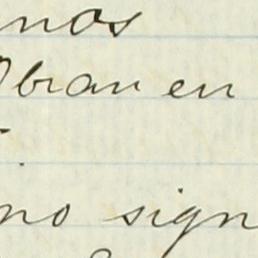 nos
Obran en
no sign